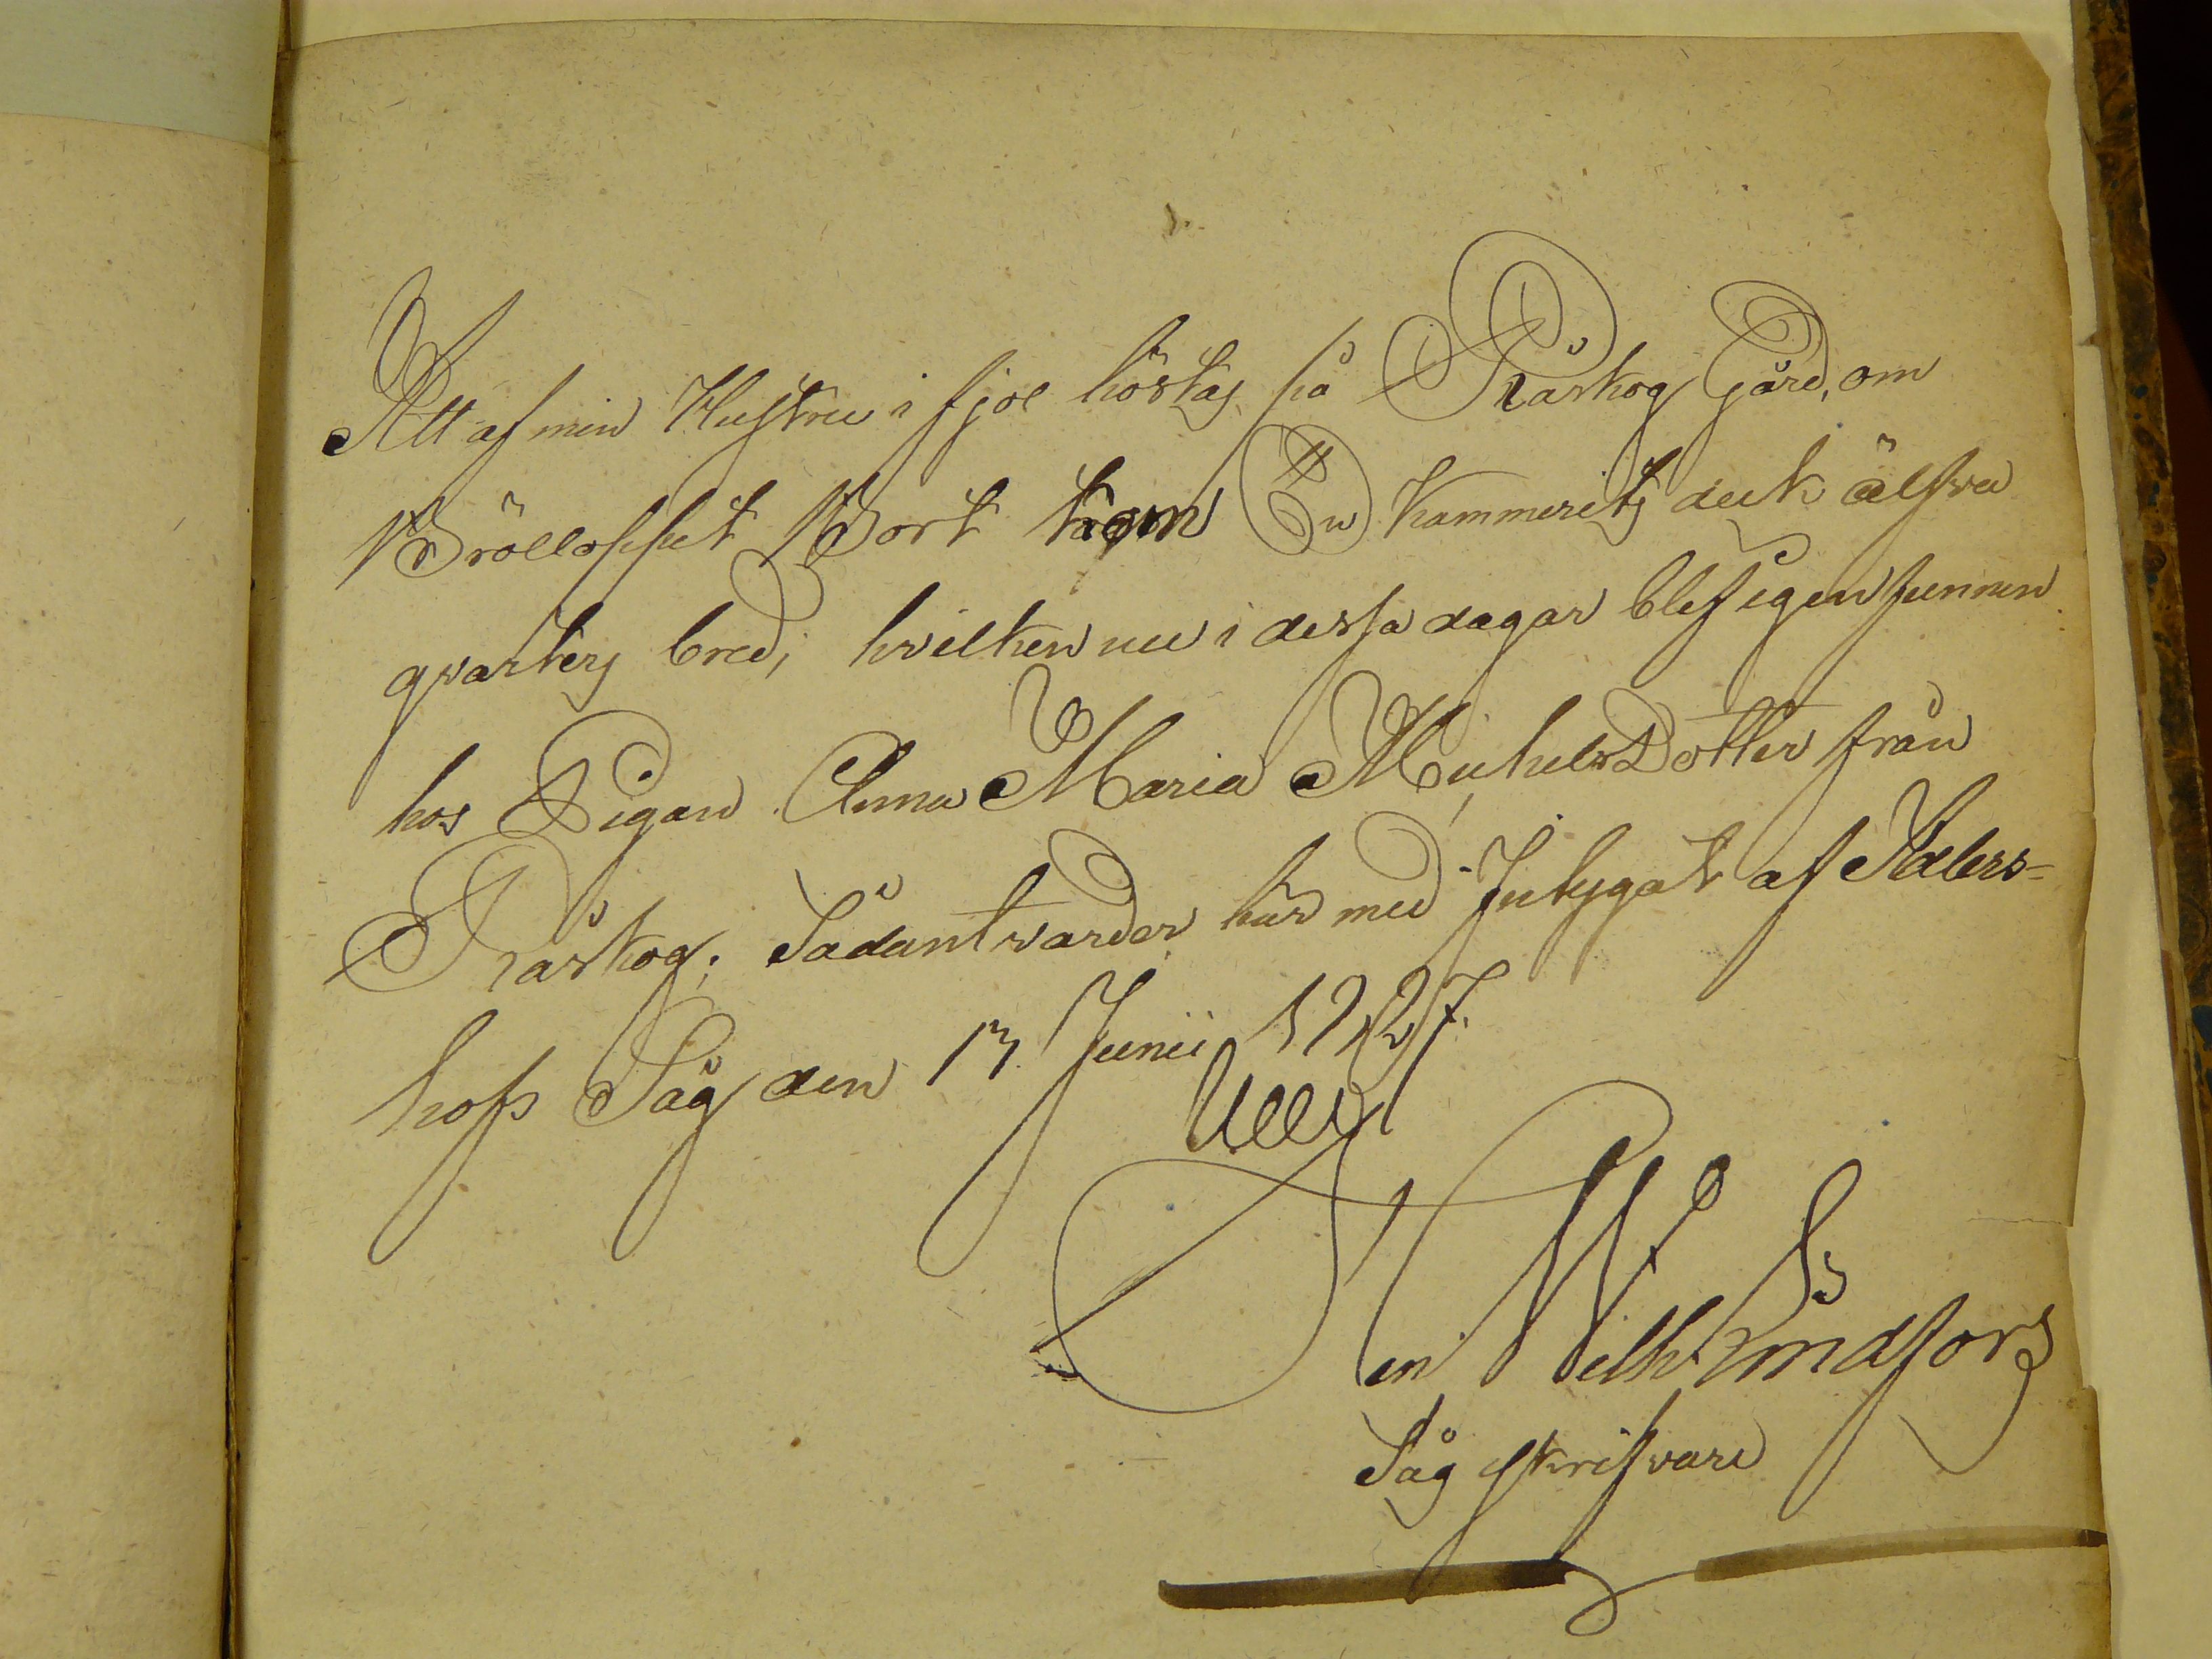 Att af min Hustru i fjol höstas på Råskog Gård, om
Bröllopput Bort kom En Kammerits duk älfva
qvarters bred, hvilken nu i dessa dagar blef igenfunnen
hos Pigan Anna Maria Michels Dotter från
Råskog; Sådant varder här med Intygat af Aders-
hofs Såg den 13 Junii 1827.
Carl Wilh. Lindfors
Såg skrifvare